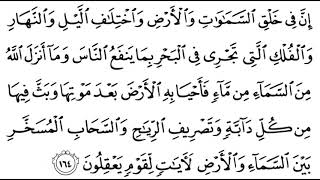 إِنَّ فِي خَلْقِ السَّمَٰوَٰتِ وَالْأَرْضِ وَاخْتِلَٰفِ الَّيْلِ وَالنَّهَارِ
وَالْفُلْكِ الَّتِي تَجْرِي فِي الْبَحْرِ بِمَا يَنفَعُ النَّاسَ وَمَآ أَنزَلَ اللَّهُ
مِنَ السَّمَآءِ مِن مَّآءٍ فَأَحْيَا بِهِ الْأَرْضَ بَعْدَ مَوْتِهَا وَبَثَّ فِيهَا
مِن كُلِّ دَآبَّةٍ وَتَصْرِيفِ الرِّيَٰحِ وَالسَّحَابِ الْمُسَخَّرِ
بَيْنَ السَّمَآءِ وَالْأَرْضِ لَءَايَٰتٍ لِّقَوْمٍ يَعْقِلُونَ ١٦٤